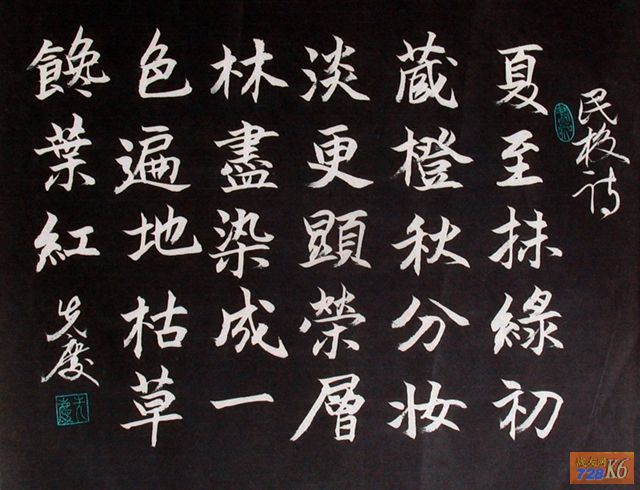 民诗
夏至抹綠初
蔵橙秋分妆
淡更顯榮層
林盡染成一
色遍地枯草
饞葉紅
先慶
728K6